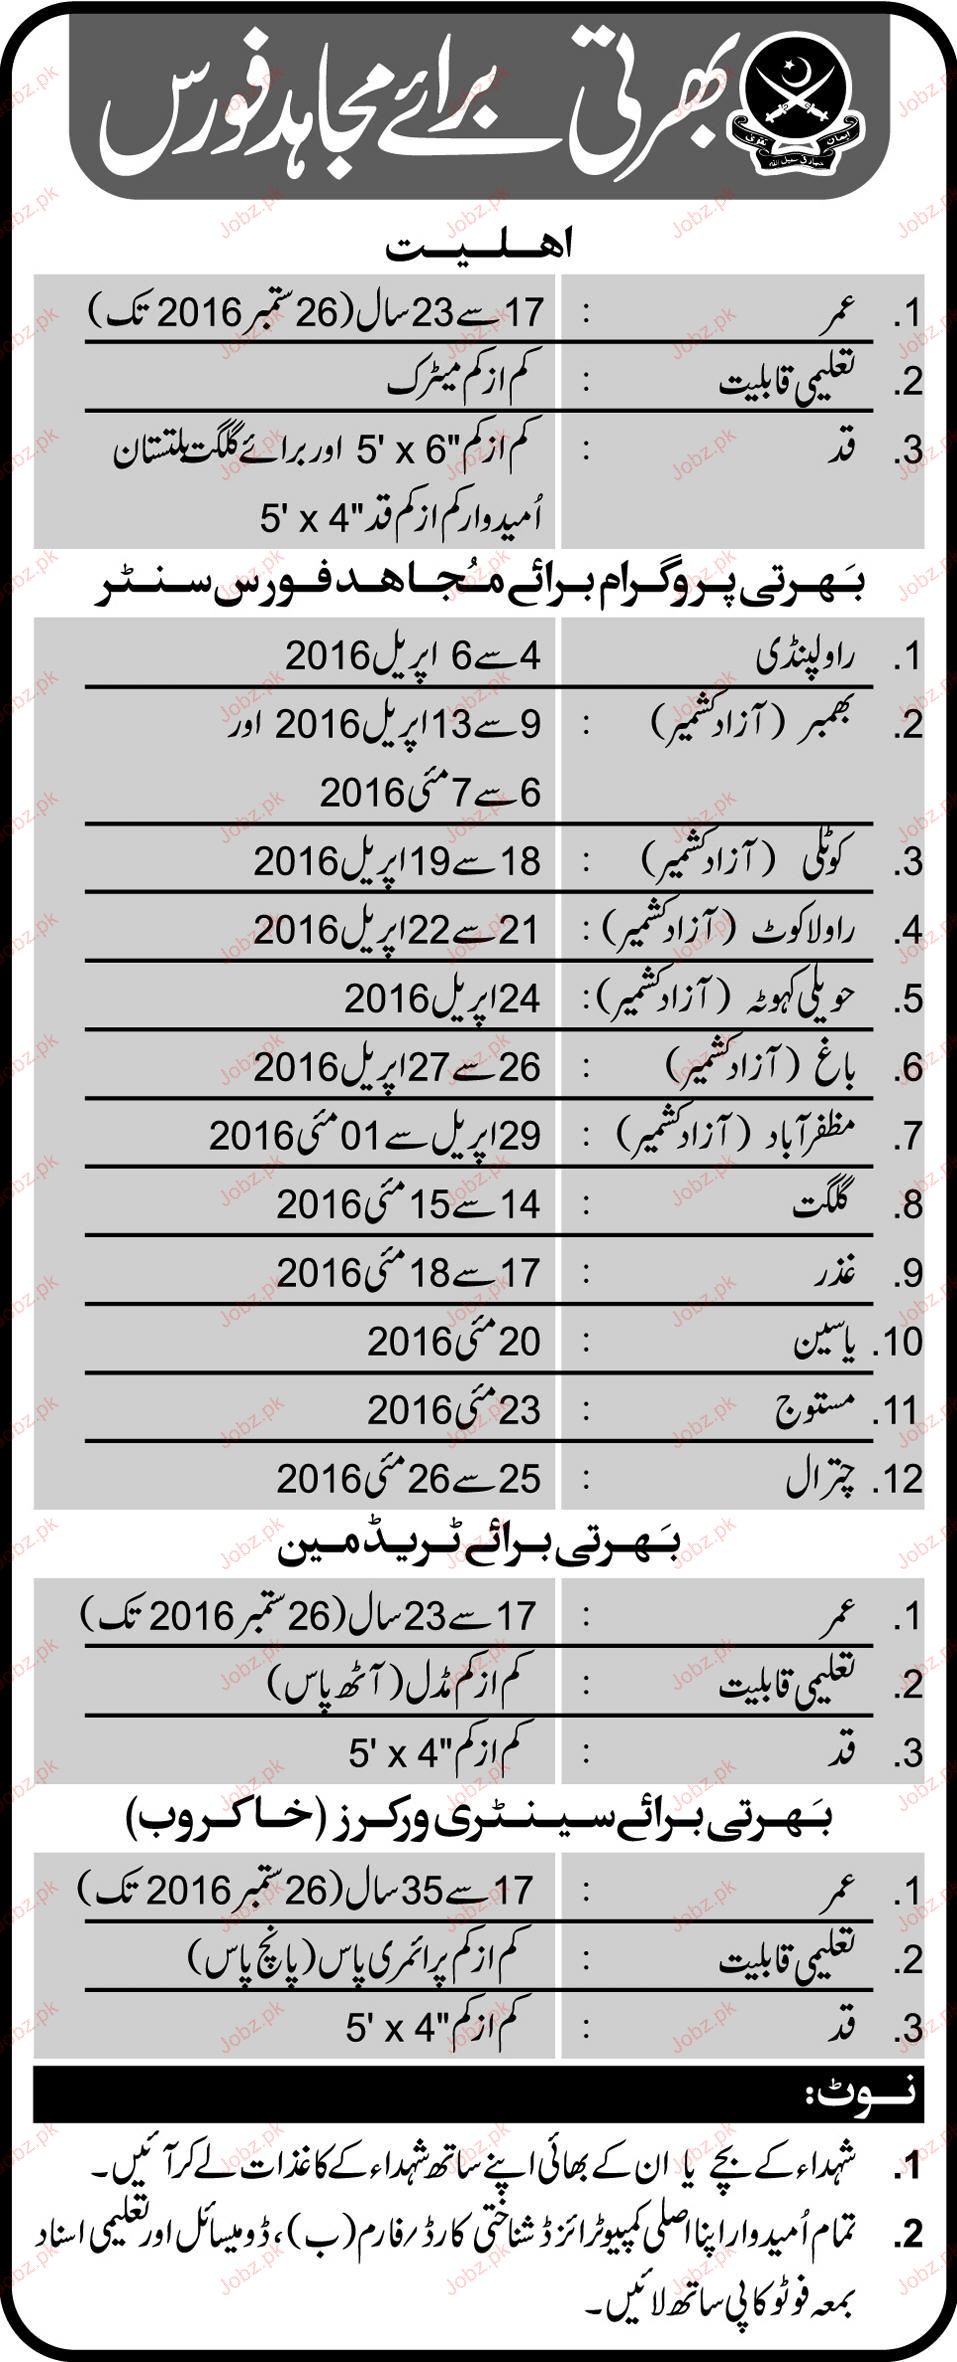 بھرتی برائے مجاہد فورس
ایمان تقویٰ
جہاد فی سبیل اللہ
اہلیت
1. عمر : 17 سے 23 سال (26 ستمبر 2016 تک)
2. تعلیمی قابلیت : کم از کم میٹرک
3. قد : کم از کم "6 x '5 اور برائے گلگت بلتستان
اُمیدوار کم از کم قد "4 x '5
بَھرتی پروگرام برائے مُجاھد فورس سنٹر
1. راولپنڈی 4 سے 6 اپریل 2016
2. بھمبر (آزاد کشمیر) : 9 سے 13 اپریل 2016 اور
6 سے 7 مئی 2016
3. کوٹلی (آزاد کشمیر) : 18 سے 19 اپریل 2016
4. راولاکوٹ (آزاد کشمیر) : 21 سے 22 اپریل 2016
5. حویلی کہوٹہ (آزاد کشمیر) : 24 اپریل 2016
6. باغ (آزاد کشمیر) : 26 سے 27 اپریل 2016
7. مظفرآباد (آزاد کشمیر) : 29 اپریل سے 01 مئی 2016
8. گلگت : 14 سے 15 مئی 2016
9. غذر : 17 سے 18 مئی 2016
10. یاسین : 20 مئی 2016
11. مستوج : 23 مئی 2016
12. چترال : 25 سے 26 مئی 2016
بَھرتی برائے ٹریڈ مین
1. عمر : 17 سے 23 سال (26 ستمبر 2016 تک)
2. تعلیمی قابلیت : کم از کم مڈل (آٹھ پاس)
3. قد : کم از کم "4 x '5
بَھرتی برائے سینٹری ورکرز (خاکروب)
1. عمر : 17 سے 35 سال (26 ستمبر 2016 تک)
2. تعلیمی قابلیت : کم از کم پرائمری پاس (پانچ پاس)
3. قد : کم از کم "4 x '5
نوٹ:
1. شہداء کے بچے یا ان کے بھائی اپنے ساتھ شہداء کے کاغذات لے کر آئیں۔
2. تمام اُمیدوار اپنا اصلی کمپیوٹرائزڈ شناختی کارڈ/فارم (ب)، ڈومیسائل اور تعلیمی اسناد
بمعہ فوٹو کاپی ساتھ لائیں۔
Jobz.pk